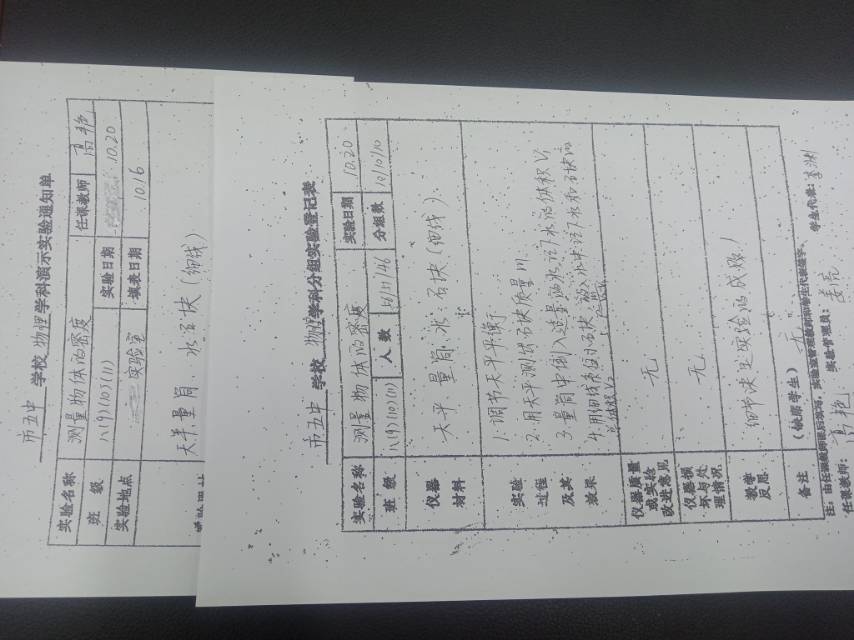 市五中 学校 物理 学科演示实验通知单
实验名称 测量物体的密度 任课教师 高艳
班 级 八(9)(10)(11) 实验日期 10.20
实验地点 实验室 填表日期 10.16
天平、量筒、水、石块(细线)
市五中 学校 物理 学科分组实验登记表
实验名称 测量物体的密度 实验日期 10.20
班 级 八(9)(10)(11) 人 数 分组数 10/10/10
仪器材料 天平、量筒、水、石块(细线)
实验过程及其效果
1. 调节天平平衡
2. 用天平测出石块质量m
3. 量筒中倒入适量的水记下水的体积V₁
4. 用细线系住小石块
总体积V₂
仪器质量或实验改进意见 无
仪器损坏与处理情况 无
教学反思 细节决定实验的成败!
备注 (缺席学生) 无
注:由任课教师课后填写,实验室管理教师和学生代表签字。
任课教师:高艳 实验管理员: 学生代表: